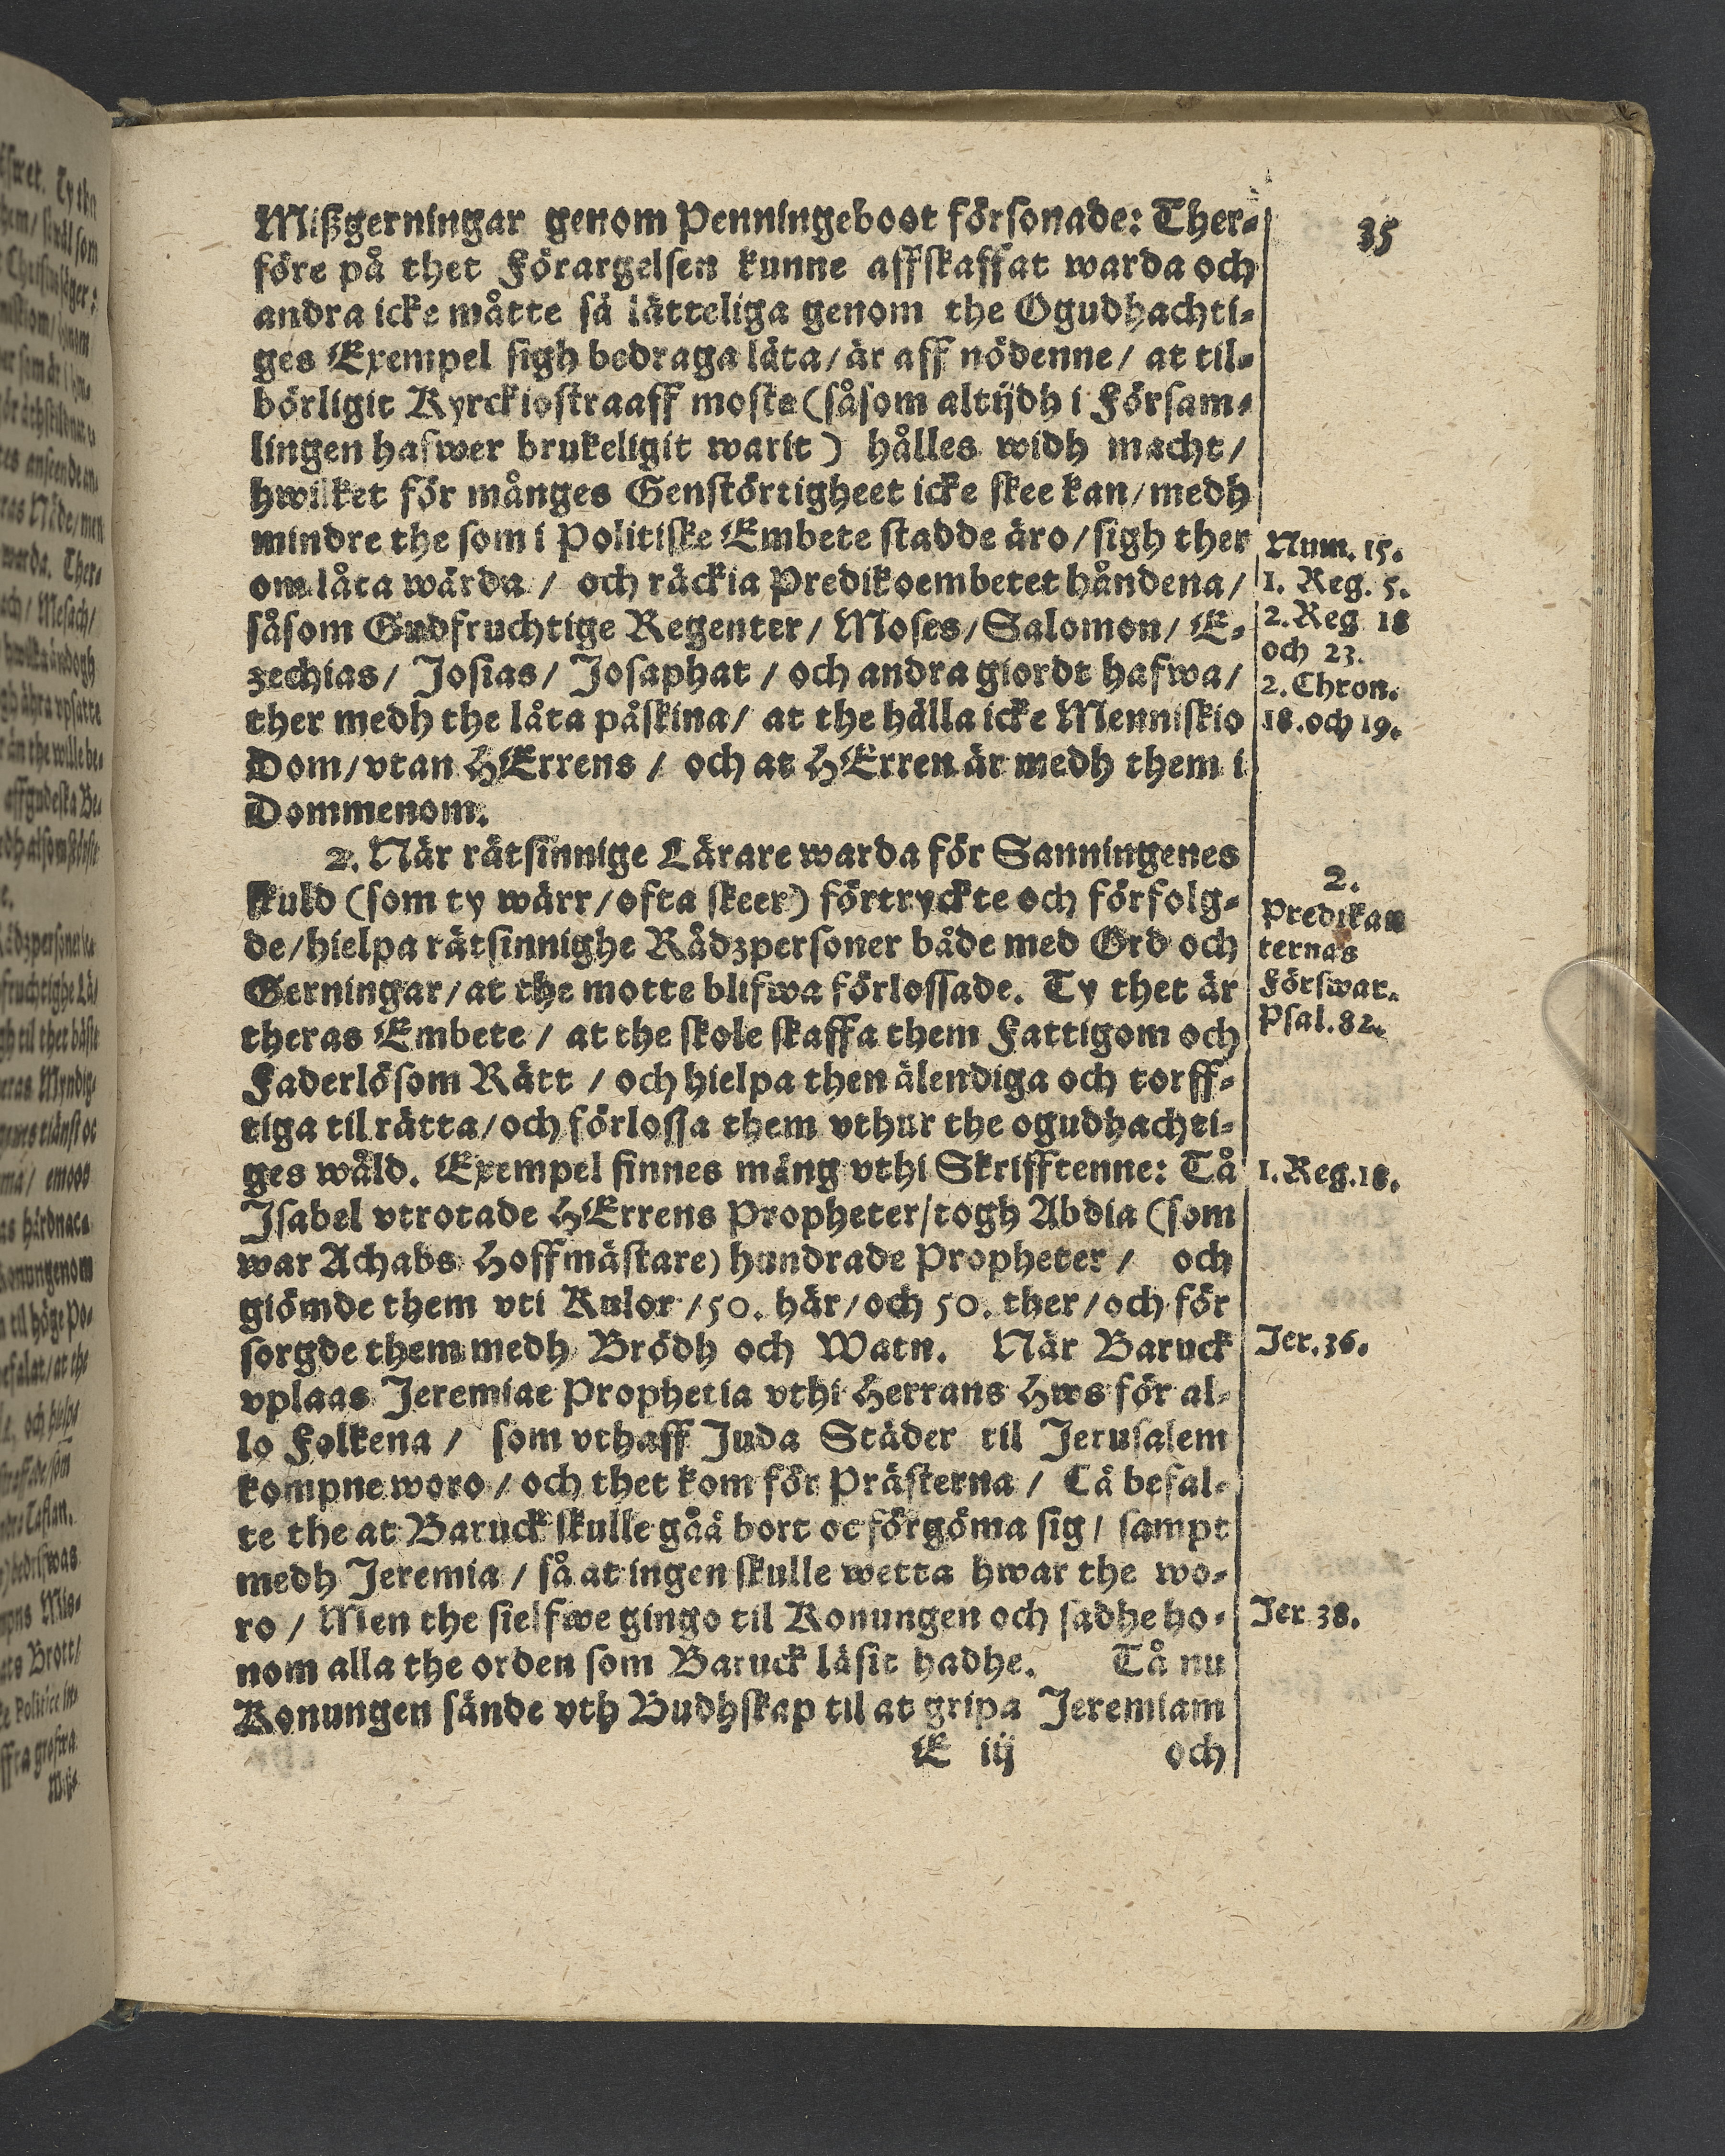 35
Mißgerningar genom Penningeboot försonade: Ther-
före på thet Förargelsen kunne affskaffat warda och
andra icke måtte så lätteliga genom the Ogudhachti-
ges Exempel sigh bedraga låta/ är aff nödenne/ at til-
börligit Kyrckiostraaff moste (såsom altijdh i Försam-
lingen hafwer brukeligit warit) hålles widh macht/
hwilket för månges Genstörtigheet icke skee kan/ medh
mindre the som i Politiske Embete stadde äro/ sigh ther
om låta wårda/ och räckia Predikoembetet håndena/
såsom Gudfruchtige Regenter/ Moses/ Salomon/ E-
zechias/ Josias/ Josaphat/ och andra giordt hafwa/
ther medh the låta påskina/ at the hålla icke Menniskio
Dom/ vtan HErrens/ och at HErren är medh them i
Dommenom.
Num. 15.
1. Reg. 5.
2. Reg 18
och 23.
2. Chron.
18. och 19.
2. När rätsinnige Lärare warda för Sanningenes
skuld (som ty wärr/ ofta skeer) förtryckte och förfolg-
de/ hielpa rätsinnighe Rådzpersoner både med Ord och
Gerningar/ at the motte blifwa förlossade. Ty thet är
theras Embete/ at the skole skaffa them Fattigom och
Faderlösom Rätt/ och hielpa then älendiga och torff-
tiga til rätta/ och förlossa them vthur the ogudhachti-
ges wåld. Exempel finnes mång vthi Skrifftenne: Tå
Isabel vtrotade HErrens Propheter/ togh Abdia (som
war Achabs Hoffmästare) hundrade Propheter/ och
giömde them vti Kulor/ 50. här/ och 50. ther/ och för
sorgde them medh Brödh och Watn. När Baruck
vplaas Jeremiae Prophetia vthi Herrans Hws för al-
lo Folkena/ som vthaff Juda Städer til Jerusalem
kompne woro/ och thet kom för Prästerna/ Tå befal-
te the at Baruck skulle gåå bort oc förgöma sig/ sampt
medh Jeremia/ så at ingen skulle wetta hwar the wo-
ro/ Men the sielfwe gingo til Konungen och sadhe ho-
nom alla the orden som Baruck läsit hadhe. Tå nu
Konungen sände vth Budhskap til at gripa Jeremiam
E iij och
2.
Predikan
ternas
Förswar.
Psal. 82.
1. Reg. 18.
Jer. 36.
Jer 38.